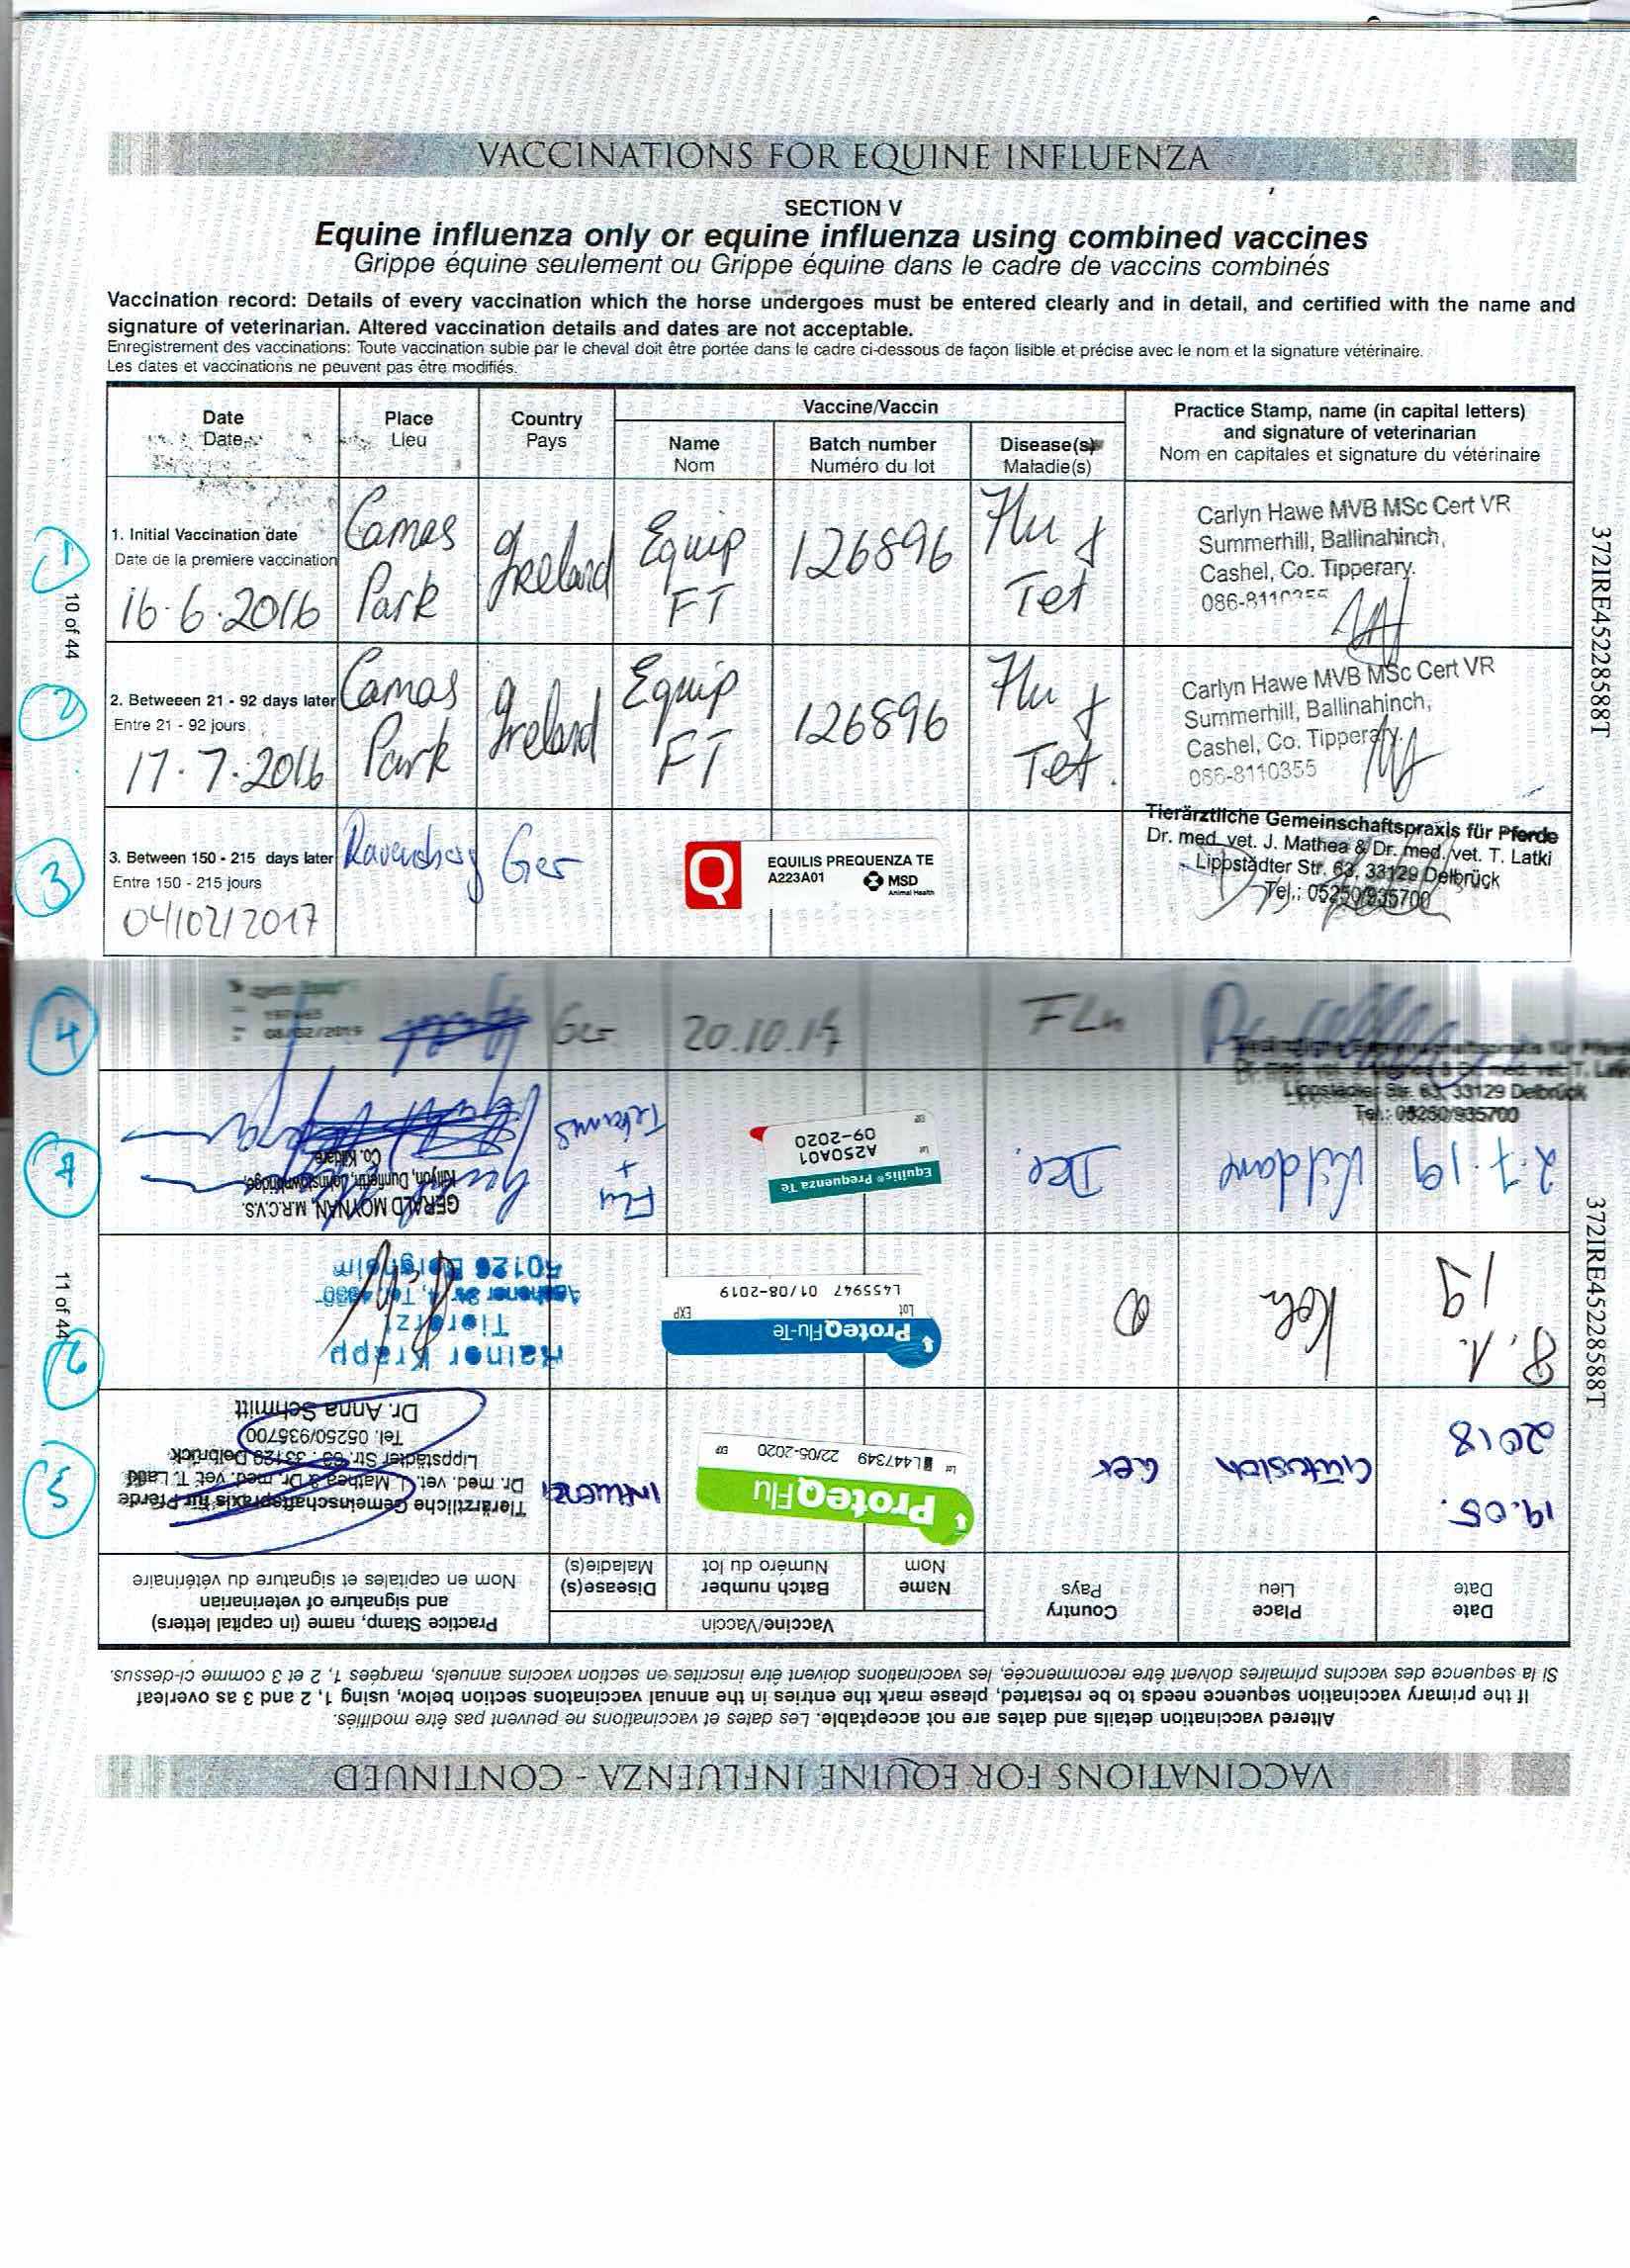 VACCINATIONS FOR EQUINE INFLUENZA
SECTION V
Equine influenza only or equine influenza using combined vaccines
Grippe équine seulement ou Grippe équine dans le cadre de vaccins combinés
Vaccination record: Details of every vaccination which the horse undergoes must be entered clearly and in detail, and certified with the name and
signature of veterinarian. Altered vaccination details and dates are not acceptable.
Enregistrement des vaccinations: Toute vaccination subie par le cheval doit être portée dans le cadre ci-dessous de façon lisible et précise avec le nom et la signature vétérinaire.
Les dates et vaccinations ne peuvent pas être modifiés.
Date
Date
Place
Lieu
Country
Pays
Vaccine/Vaccin
Name
Nom
Batch number
Numéro du lot
Disease(s)
Maladie(s)
Practice Stamp, name (in capital letters)
and signature of veterinarian
Nom en capitales et signature du vétérinaire
1
1. Initial Vaccination date
Date de la premiere vaccination
16.6.2016
Camas
Park
Ireland
Equip
FT
126896
Flu &
Tet
Carlyn Hawe MVB MSc Cert VR
Summerhill, Ballinahinch,
Cashel, Co. Tipperary.
086-8110355
2
2. Betweeen 21 - 92 days later
Entre 21 - 92 jours
17.7.2016
Camas
Park
Ireland
Equip
FT
126896
Flu &
Tet.
Carlyn Hawe MVB MSc Cert VR
Summerhill, Ballinahinch,
Cashel, Co. Tipperary.
086-8110355
3
3. Between 150 - 215 days later
Entre 150 - 215 jours
04/02/2017
Ravensberg
Ger
Q
EQUILIS PREQUENZA TE
A223A01
MSD
Animal Health
Tierärztliche Gemeinschaftspraxis für Pferde
Dr. med. vet. J. Mathea & Dr. med. vet. T. Latki
Lippstädter Str. 63, 33129 Delbrück
Tel.: 05250/935700
10 of 44
372IRE45228588T
4
08/02/2019
Ger
20.10.17
FLu
Lippstädter Str. 63, 33129 Delbrück
Tel.: 05250/935700
VACCINATIONS FOR EQUINE INFLUENZA - CONTINUED
Altered vaccination details and dates are not acceptable. Les dates et vaccinations ne peuvent pas être modifiés.
If the primary vaccination sequence needs to be restarted, please mark the entries in the annual vaccinatons section below, using 1, 2 and 3 as overleaf
Si la sequence des vaccins primaires doivent être recommencée, les vaccinations doivent étre inscrites en section vaccins annuels, margées 1, 2 et 3 comme ci-dessus.
Date
Date
Place
Lieu
Country
Pays
Vaccine/Vaccin
Name
Nom
Batch number
Numéro du lot
Disease(s)
Maladie(s)
Practice Stamp, name (in capital letters)
and signature of veterinarian
Nom en capitales et signature du vétérinaire
5
19.05.
2018
Gütersloh
Ger
ProteqFlu
Lot L447349 22/05-2020 EXP
Influenza
Tierärztliche Gemeinschaftspraxis für Pferde
Dr. med. vet. J. Mathea & Dr. med. vet. T. Latki
Lippstädter Str. 63 · 33129 Delbrück
Tel. 05250/935700
Dr. Anna Schmitt
6
8.1.
19
Köln
D
ProteqFlu-Te
Lot EXP
L455947 01/08-2019
Rainer Krapp
Tierarzt
50126 Bergheim
7
2.7.19
Kildare
Ire.
Equilis® Prequenza Te
Lot A250A01
EXP 09-2020
Flu
+
Tetanus
GERALD MOYNAN, M.R.C.V.S.
Kilyon, Dunferth, Johnstownbridge,
Co. Kildare
11 of 44
372IRE45228588T